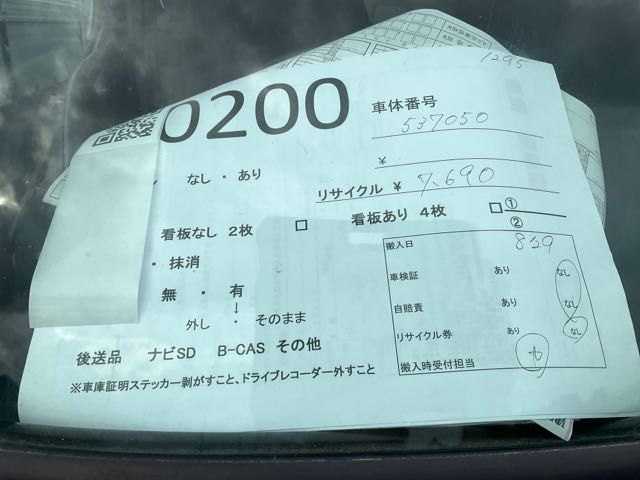 1295
0200
車体番号
537050
¥
なし ・ あり
リサイクル ¥ 7,690
看板なし 2枚 □ 看板あり 4枚 □ ①
②
・ 抹消
無 ・ 有
↓
外し ・ そのまま
後送品 ナビSD B-CAS その他
※車庫証明ステッカー剥がすこと、ドライブレコーダー外すこと
搬入日 829
車検証 あり なし
自賠責 あり なし
リサイクル券 あり なし
搬入時受付担当